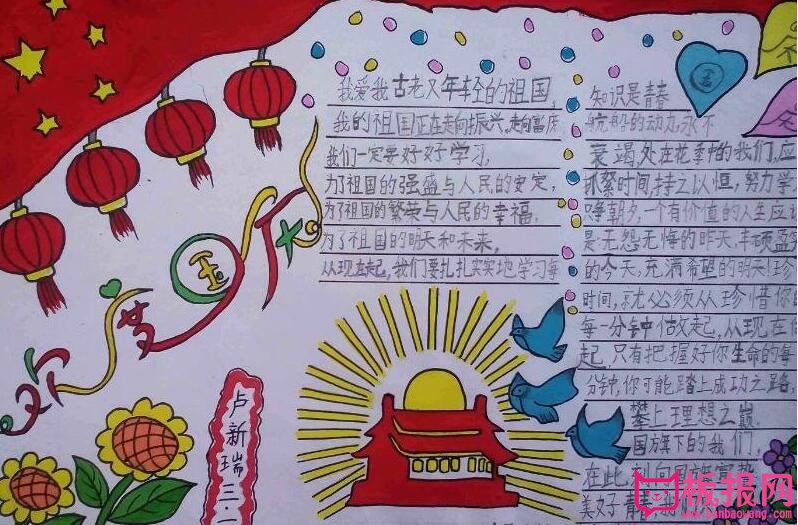 欢度国庆
我爱我古老又年轻的祖国,
我的祖国正在走向振兴,走向富庶
我们一定要好好学习,
为了祖国的强盛与人民的安定,
为了祖国的繁荣与人民的幸福,
为了祖国的明天和未来,
从现在起,我们要扎扎实实地学习每
知识是青春
航船的动力,永不
衰竭,处在花季中的我们,应
抓紧时间,持之以恒,努力学
争朝夕,一个有价值的人生应
是无怨无悔的昨天,丰硕盈
的今天,充满希望的明天!珍
时间,就必须从珍惜你
每一分钟做起,从现在
起,只有把握好你生命的每
分钟,你可能踏上成功之路,
攀上理想之巅.
国旗下的我们
在此刻向国旗宣
美好青春
卢新瑞
三.一
板报网
www.banbaowang.com